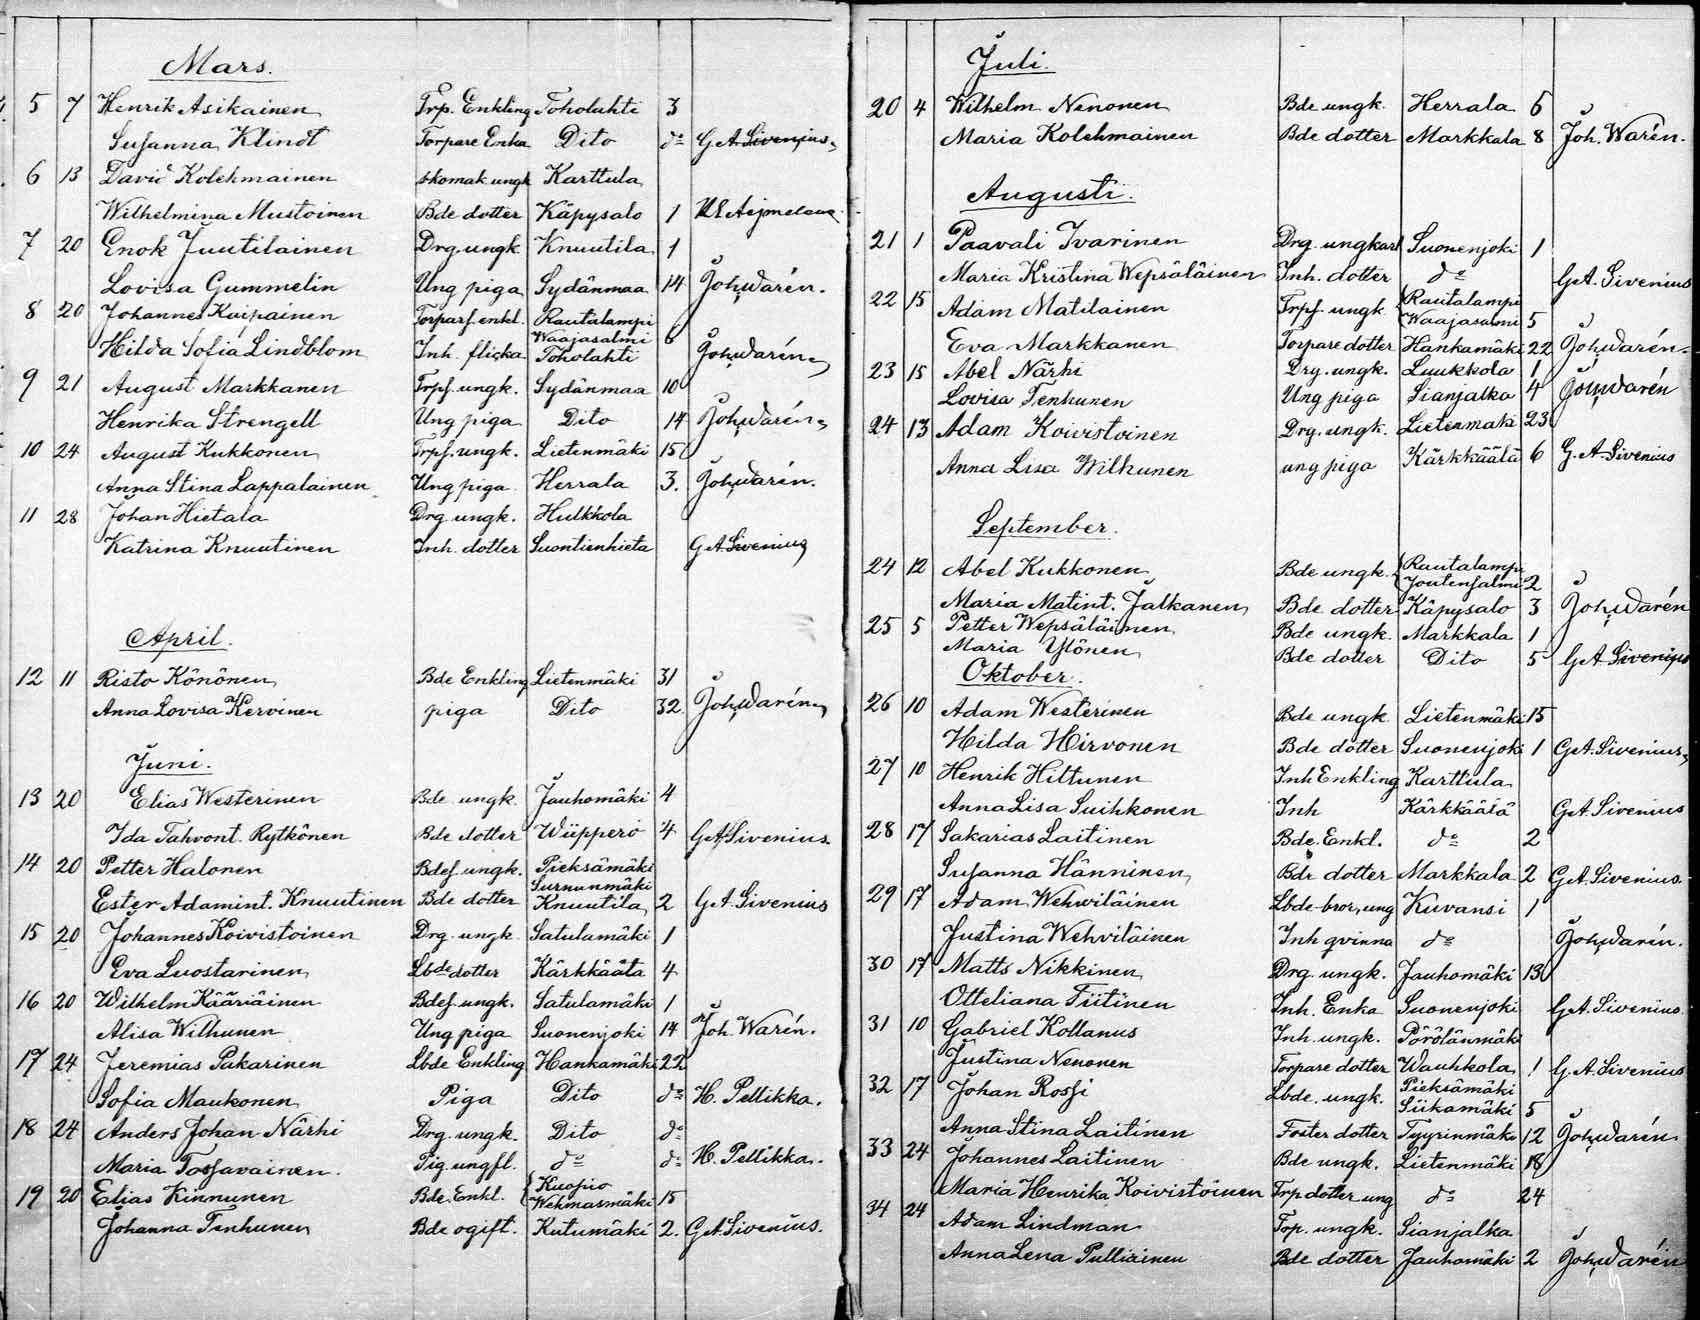 Mars.
5 7 Henrik Asikainen Trp. Enkling Toholahti 3
Susanna Klindt Torpare Enka Dito do G A Sivenius
6 13 David Kolehmainen skomak ungk Karttula
Wilhelmina Mustoinen Bde dotter Käpysalo 1
7 20 Enok Juutilainen Drg. ungk. Knuutila 1
Lovisa Gummelin Ung piga Sydänmaa 14 Joh. Warén.
8 20 Johannes Kaipainen Torparf. enkl. Rautalampi
Waajasalmi 6
Hilda Sofia Lindblom Inh. flicka Toholahti Joh. Warén
9 21 August Markkanen Trpf. ungk. Sydänmaa 10
Henrika Strengell Ung piga Dito 14 Joh. Warén
10 24 August Kukkonen Trpf. ungk. Lietenmäki 15
Anna Stina Lappalainen Ung piga Herrala 3. Joh. Warén.
11 28 Johan Hietala Drg. ungk. Hulkkola
Katrina Knuutinen Inh. dotter Suontienhieta G A Sivenius
April.
12 11 Risto Könönen Bde Enkling Lietenmäki 31
Anna Lovisa Kervinen piga Dito 32. Joh. Warén
Juni.
13 20 Elias Westerinen Bde. ungk. Jauhomäki 4
Ida Tahvont. Rytkönen Bde dotter Wüpperö 4 G A Sivenius.
14 20 Petter Halonen Bdef. ungk. Pieksämäki
Surnunmäki
Ester Adamint. Knuutinen Bde dotter Knuutila 2 G A. Sivenius
15 20 Johannes Koivistoinen Drg. ungk. Satulamäki 1
Eva Luostarinen Lbde dotter Kärkkäälä 4
16 20 Wilhelm Kääriäinen Bdef. ungk. Satulamäki 1
Alisa Wilhunen Ung piga Suonenjoki 14 Joh. Warén.
17 24 Jeremias Pakarinen Lbde Enkling Hankamäki 22
Sofia Maukonen Piga Dito do H. Pellikka.
18 24 Anders Johan Närhi Drg. ungk. Dito do
Maria Tossavainen. Pig. ungfl. do do H. Pellikka.
19 20 Elias Kinnunen Bde. Enkl. Kuopio
Wehmasmäki 15
Johanna Tenhunen Bde ogift. Kutumäki 2. G A Sivenius.
Juli.
20 4 Wilhelm Nenonen Bde ungk. Herrala 6
Maria Kolehmainen Bde dotter Markkala 8 Joh. Warén.
Augusti.
21 1 Paavali Ivarinen Drg. ungkarl Suonenjoki 1
Maria Kristina Wepsäläinen Inh. dotter do G A. Sivenius
22 15 Adam Matilainen Trpf. ungk. Rautalampi
Waajasalmi 5
Eva Markkanen Torpare dotter Hankamäki 22 Joh. Warén.
23 15 Abel Närhi Drg. ungk. Luukkola 1
Lovisa Tenhunen Ung piga Sianjalka 4 Joh. Warén
24 13 Adam Koivistoinen Drg. ungk. Lietenmäki 23
Anna Lisa Wilhunen ung piga Kärkkäälä 6 G. A. Sivenius
September.
24 12 Abel Kukkonen Bde ungk. Rautalampi
Joutensalmi 2
Maria Matint. Jalkanen Bde dotter Käpysalo 3 Joh. Warén
25 5 Petter Wepsäläinen Bde ungk. Markkala 1
Maria Ylönen Bde dotter Dito 5 G A Sivenius
Oktober.
26 10 Adam Westerinen Bde ungk. Lietenmäki 15
Hilda Hirvonen Bde dotter Suonenjoki 1 G A. Sivenius
27 10 Henrik Hiltunen Inh Enkling Karttula
Anna Lisa Suihkonen Inh Kärkkäälä G A. Sivenius
28 17 Sakarias Laitinen Bde. Enkl. do 2
Susanna Hänninen Bde dotter Markkala 2 G A. Sivenius.
29 17 Adam Wehviläinen Lbde bror, ung Kuvansi 1
Justina Wehviläinen Inh qvinna do Joh. Warén.
30 17 Matts Nikkinen Drg. ungk. Jauhomäki 13
Otteliana Tiitinen Inh. Enka Suonenjoki G A. Sivenius.
31 10 Gabriel Kollanus Inh. ungk. Pörölänmäki
Justina Nenonen Torpare dotter Wauhkola 1 G. A. Sivenius
32 17 Johan Rossi Lbde. ungk. Pieksämäki
Siikamäki 5
Anna Stina Laitinen Foster dotter Tyyrinmäki 12 Joh. Warén
33 24 Johannes Laitinen Bde ungk. Lietenmäki 18
Maria Henrika Koivistoinen Trp dotter ung do 24
34 24 Adam Lindman Torp. ungk. Sianjalka
Anna Lena Pulliainen Bde dotter Jauhomäki 2 Joh. Warén